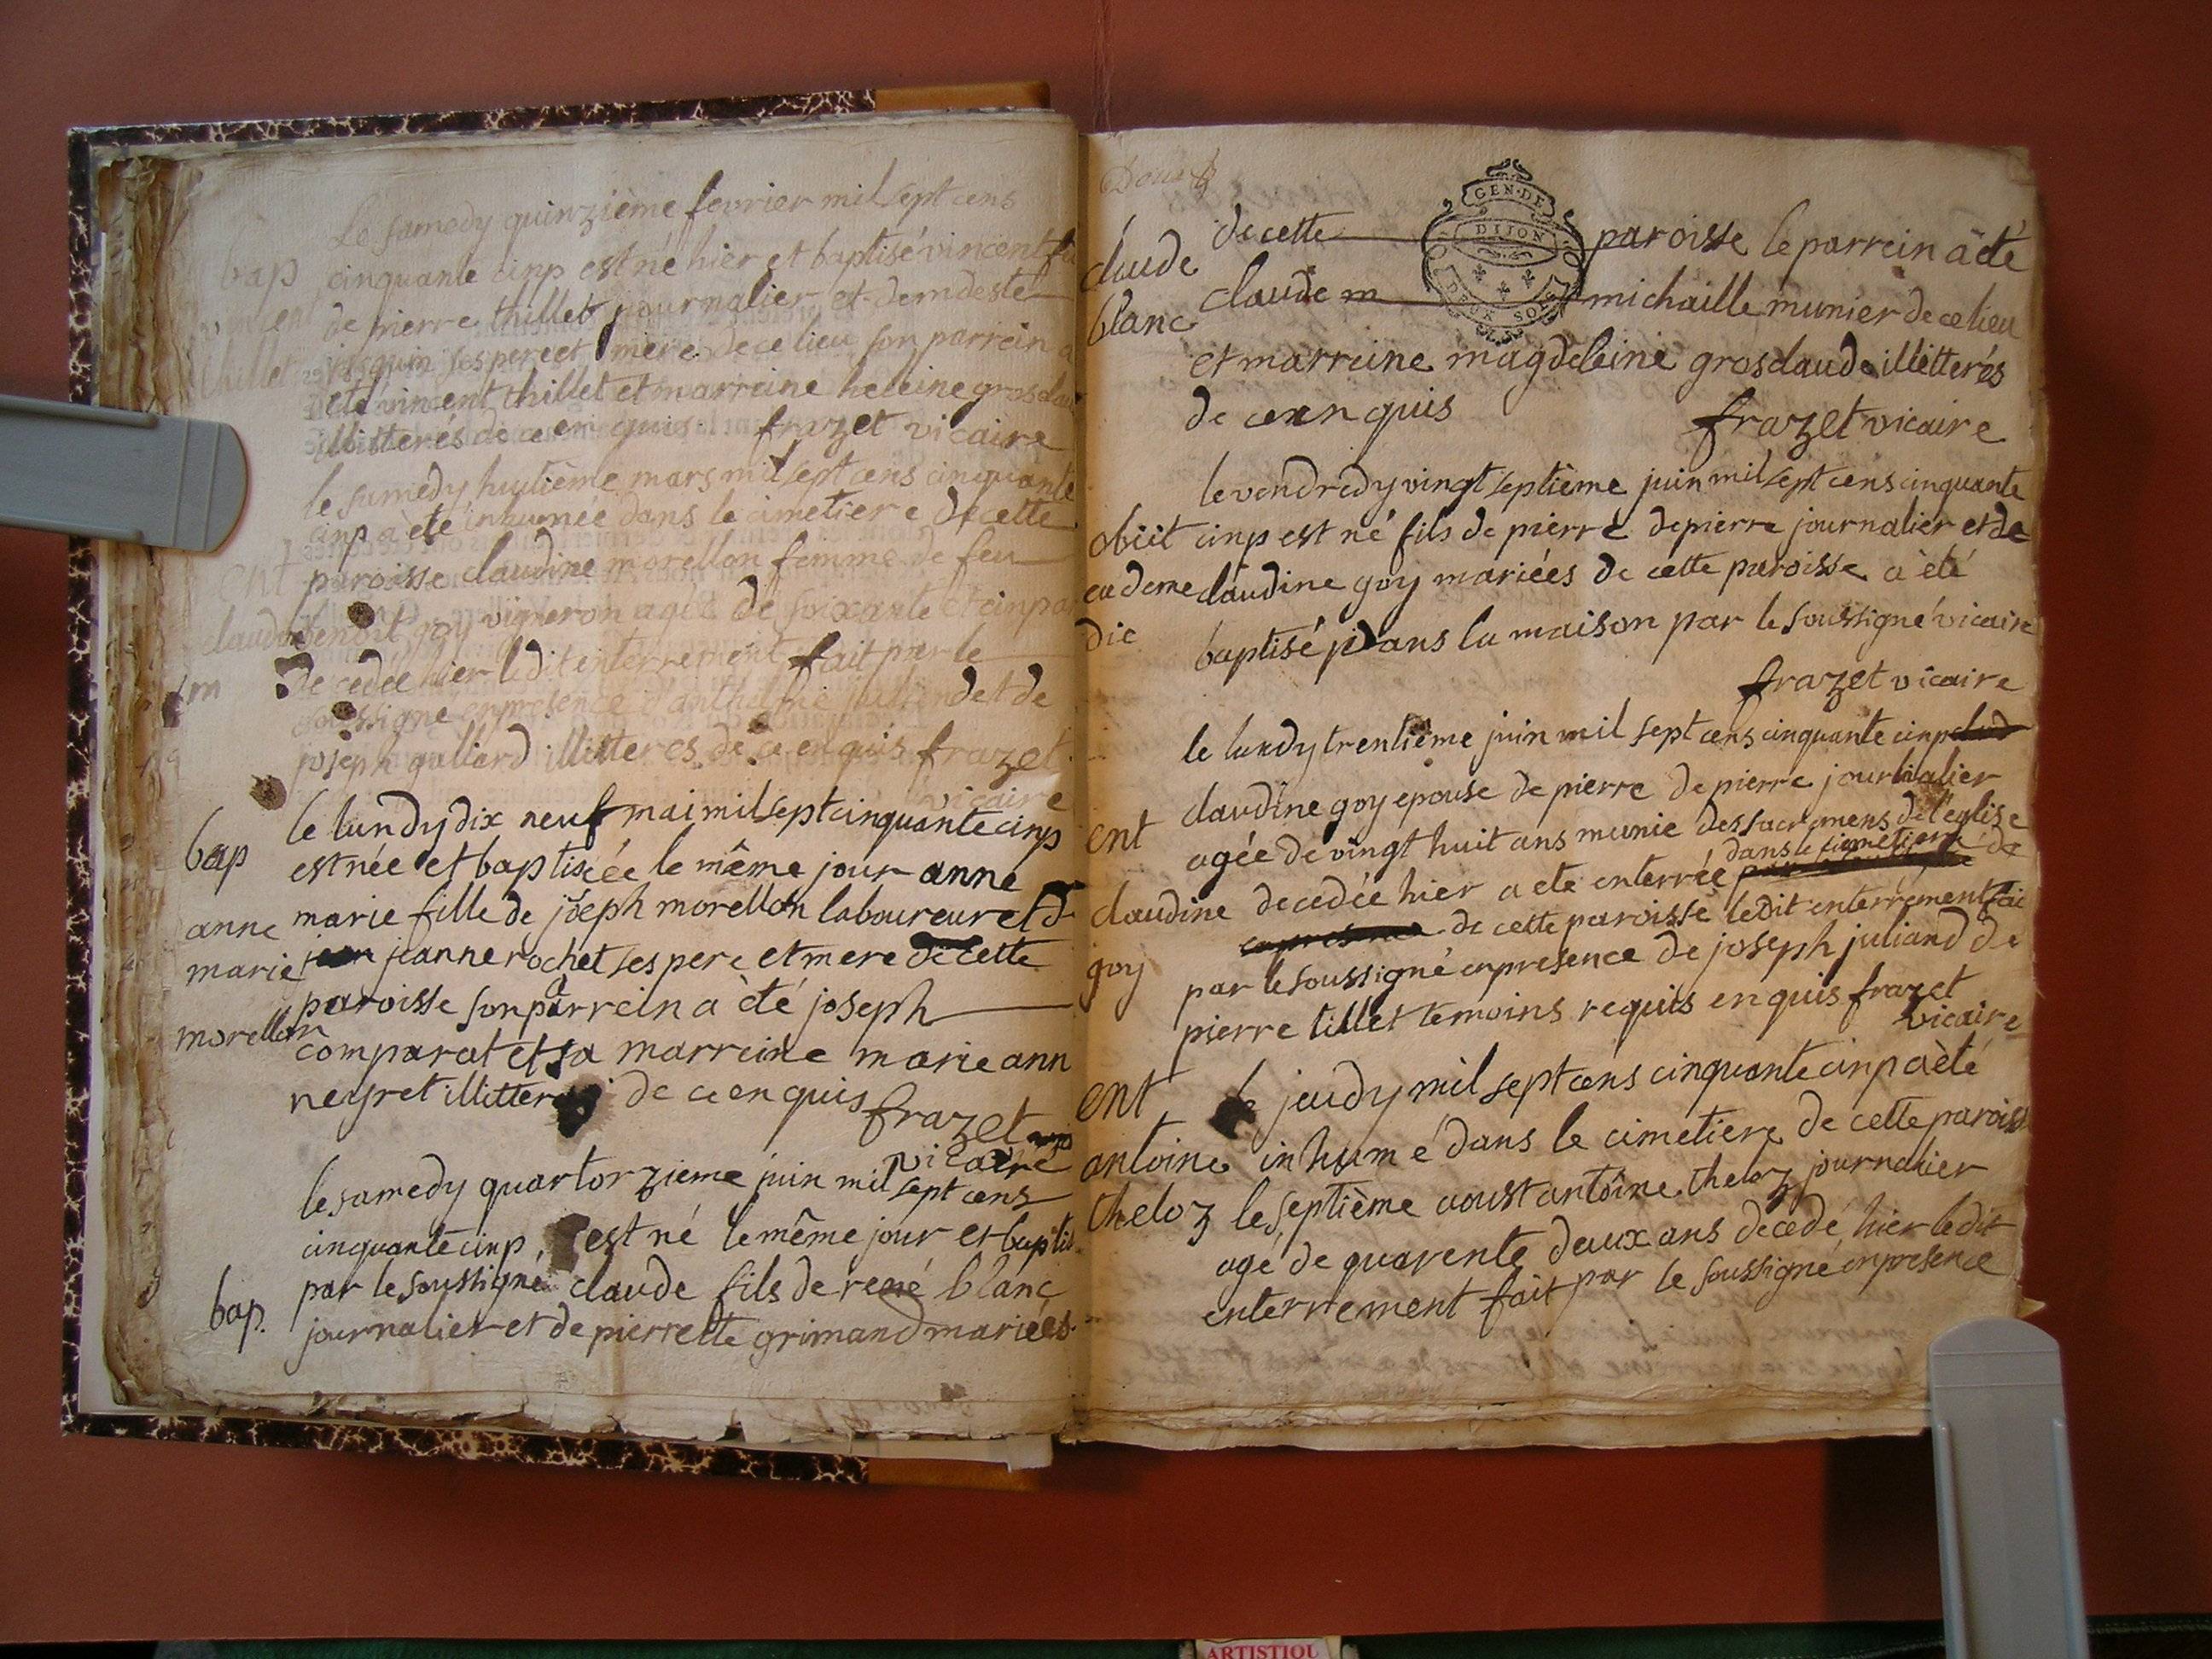 Le samedy quinzième fevrier mil sept cens
bap cinquante cinp est né hier et baptisé vincent
vincent de pierre thillet journalier et demdeste
thillet jasquin ses pere et mere de ce lieu son parrein a
été vincent thillet et marreine heleine grosclau
illitterés de ce enquis frazet vicaire
le samedy huitième mars mil sept cens cinquante
cinp a èté inhumée dans le cimetiere de cette
ent paroisse claudine morellon femme de feu
claudi benoit goy vigneron agée de soixante et cinp a
decedée hier ledit enterrement fait par le
soussigné en presence d'anthelme juliend et de
joseph galliard illitteres de ce enquis frazet
vicaire
bap le lundy dix neuf mai mil sept cinquante cinp
est née et baptiseée le même jour anne
anne marie fille de joseph morellon laboureur et d
marie jean jeanne rochet ses pere et mere de cette
morellon paroisse son parrein a èté joseph
comparat et sa marreine marie ann
neyret illitteré de ce enquis frazet
vicaire
le samedy quartorzieme juin mil sept cens
cinquante cinp, est né le même jour et baptis
bap. par le soussigné claude fils de rené blanc
journalier et de pierrette grimand mariées
GEN·DE
DIJON
DEUX SOLS
claude de cette paroisse le parrein à èté
blanc claude m michaille munier de ce lieu
et marreine magdeleine grosclaude illitterés
de ce enquis frazet vicaire
le vendredy vingt septième juin mil sept cens cinquante
obiit cinp est né fils de pierre depierre journalier et de
eademe claudine goy mariées de cette paroisse a èté
die baptisé dans la maison par le soussigné vicaire
frazet vicaire
le lundy trentième juin mil sept cens cinquante cinp clud
claudine goy epouse de pierre de pierre journalier
ent agée de vingt huit ans munie des sacremens de l'eglise
dans le cimetiere
claudine decedée hier a ete enterrée de
en presence de cette paroisse ledit enterrement fai
goy par le soussigné en presence de joseph juliand de
pierre tillet temoins requis enquis frazet
vicaire
ent le jeudy mil sept cens cinquante cinp a èté
antoine inhumé dans le cimetiere de cette paroiss
theloz le septième aoust antoine theloz journalier
agé de quarente deux ans decedé hier ledit
enterrement fait par le soussigné en presence
ARTISTIQU